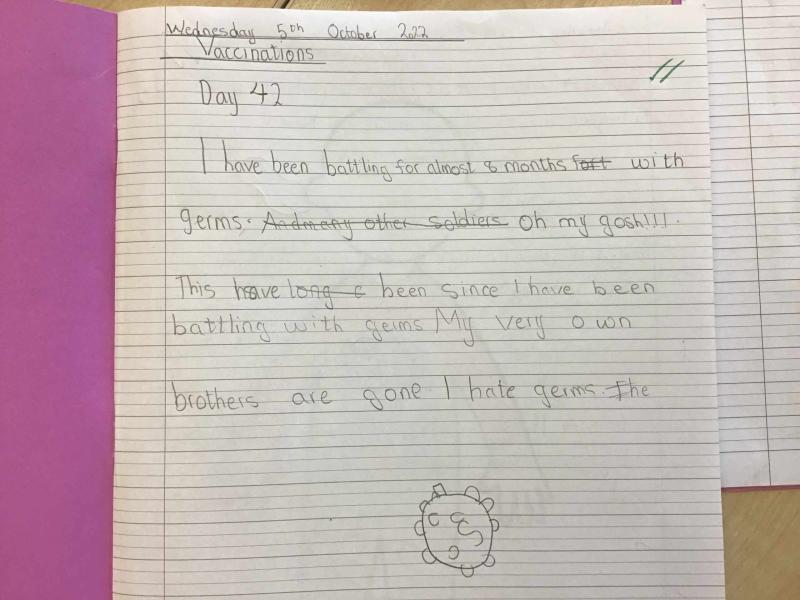 Wednesday 5th October 2022
Vaccinations
Day 42
I have been battling for almost 8 months fort with
germs. And many other soldiers Oh my gosh!!!.
This have long c been since I have been
battling with germs My very own
brothers are gone I hate germs. The